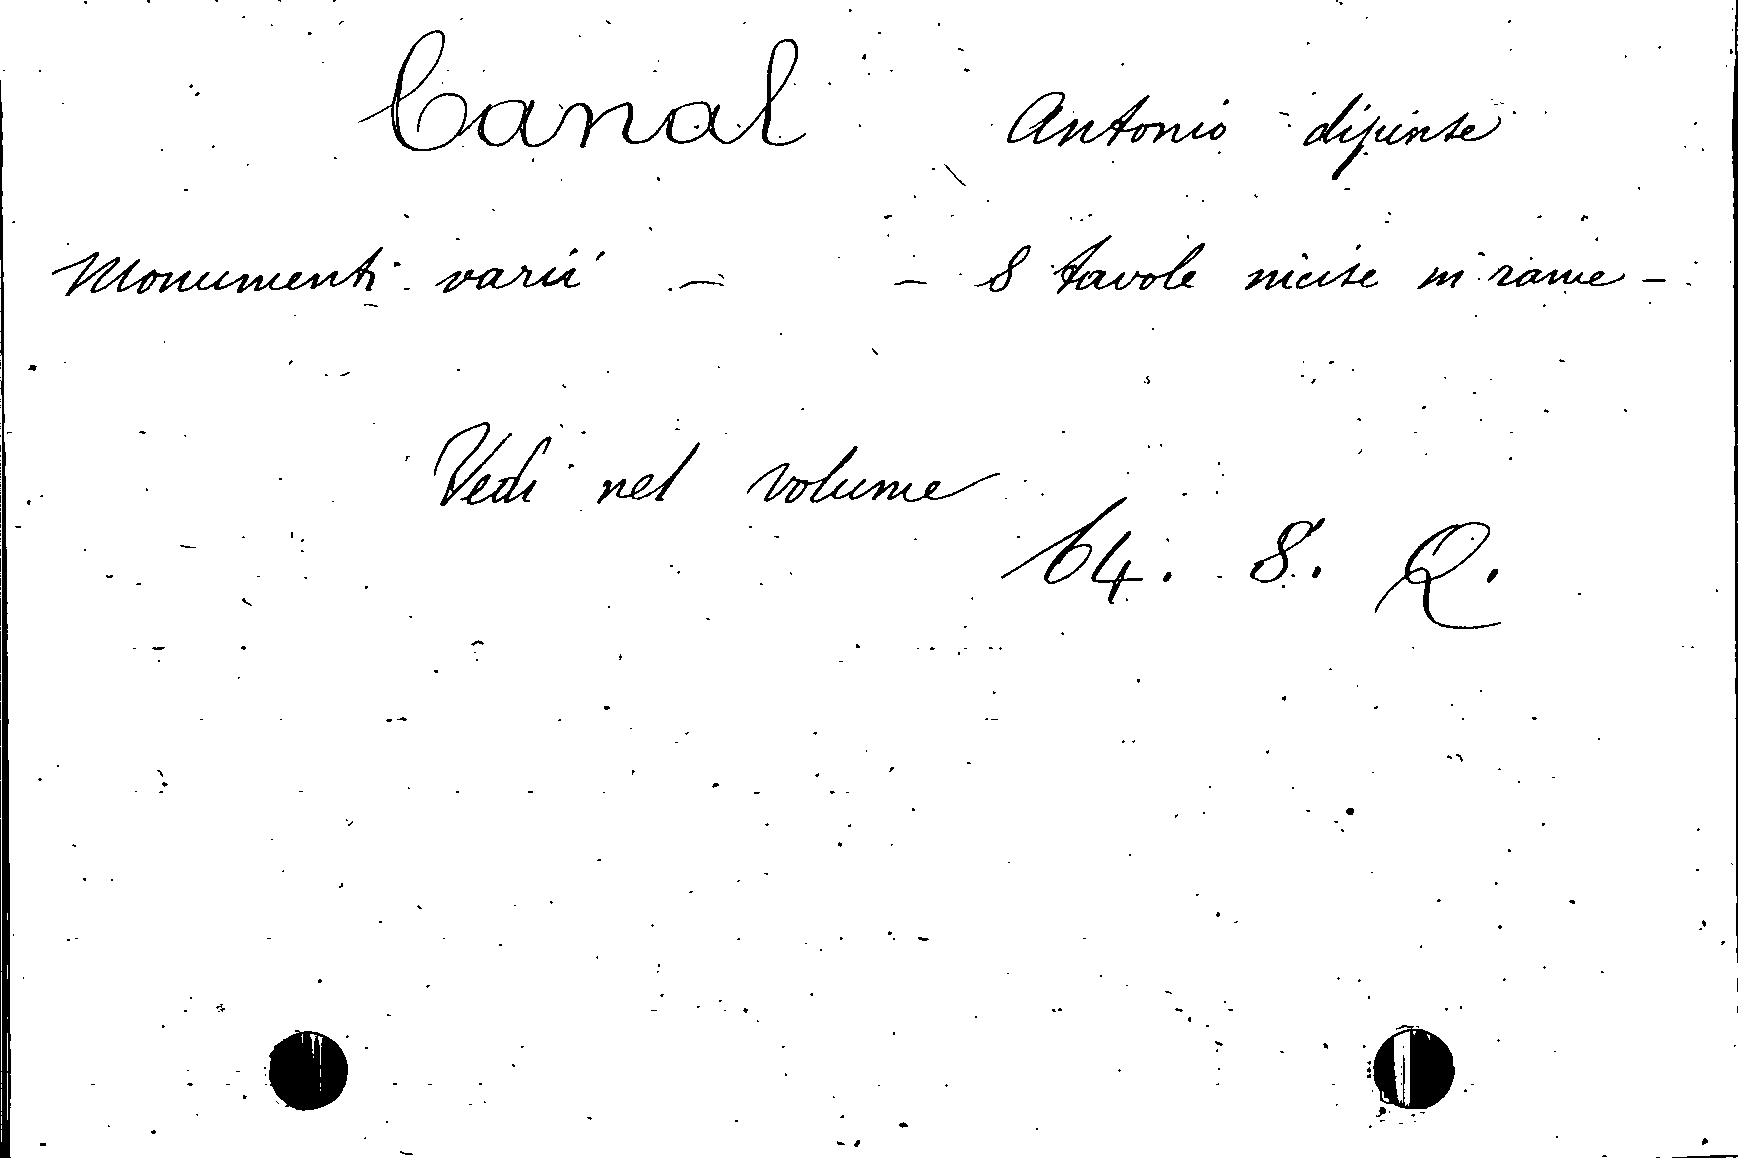 Canal Antonio dipinse
Monumenti varii - - 8 tavole incise in rame -
Vedi nel volume
64. 8. Q.